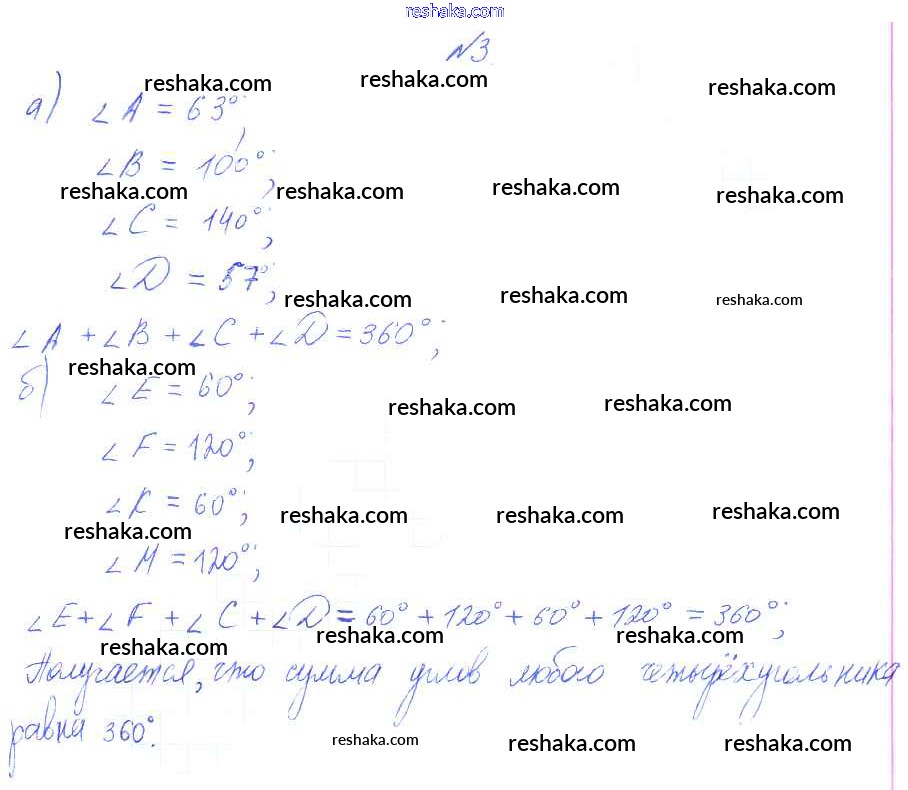 reshaka.com
№3
reshaka.com reshaka.com reshaka.com
а) ∠A = 63°;
∠B = 100°;
reshaka.com reshaka.com reshaka.com reshaka.com
∠C = 140°;
∠D = 57°;
reshaka.com reshaka.com reshaka.com
∠A + ∠B + ∠C + ∠D = 360°;
reshaka.com
б) ∠E = 60°;
reshaka.com reshaka.com
∠F = 120°;
∠K = 60°;
reshaka.com reshaka.com reshaka.com reshaka.com
∠M = 120°;
∠E + ∠F + ∠C + ∠D = 60° + 120° + 60° + 120° = 360°;
reshaka.com reshaka.com reshaka.com
Получается, что сумма углов любого четырёхугольника
равна 360°.
reshaka.com reshaka.com reshaka.com